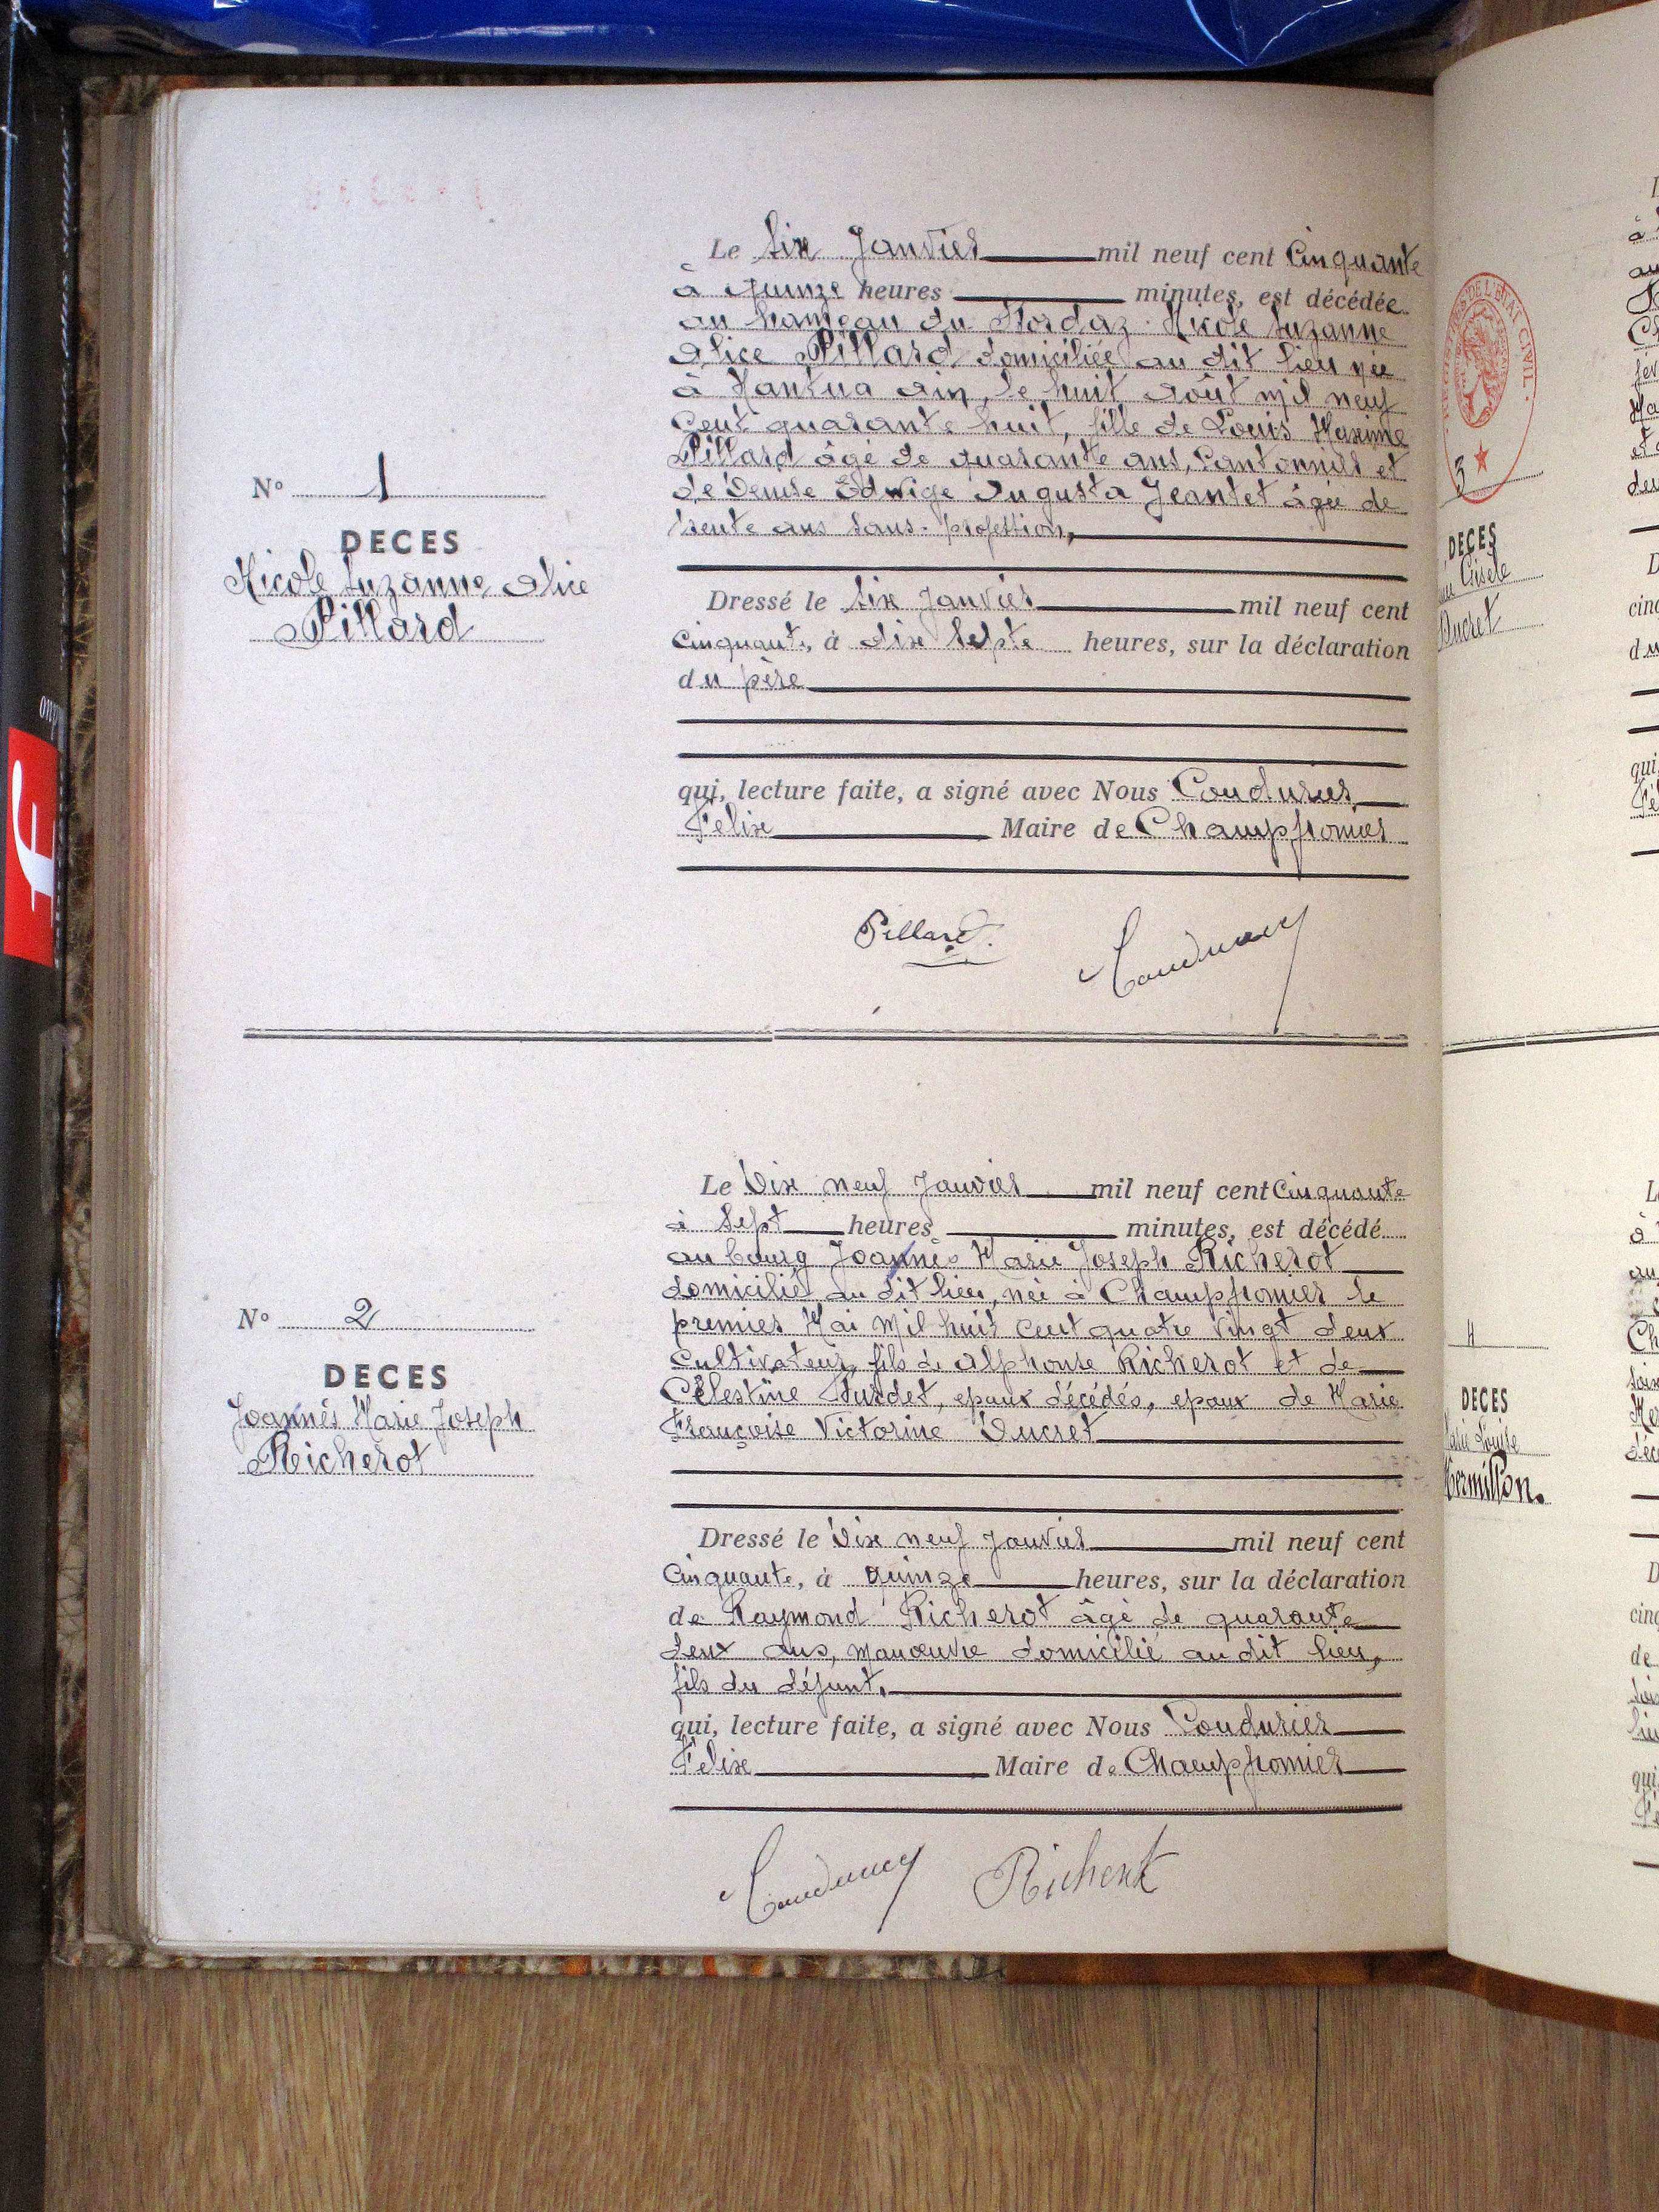 Le six Janvier mil neuf cent Cinquante
à quinze heures minutes, est décédée
au hameau du Nicole Suzanne
Alice Pillard domiciliée au dit lieu née
à Nantua Ain, le huit Août mil neuf
cent quarante huit, fille de Louis Maxime
Pillard âgé de quarante ans, Cantonnier et
de Denise Edwige Augusta Jeantet âgée de
trente ans sans profession,
N° 1
DECES
Nicole Suzanne Alice
Pillard
Dressé le six Janvier mil neuf cent
cinquante, à dix sept heures, sur la déclaration
du père
qui, lecture faite, a signé avec Nous Coudurier
Felix Maire de Champfromier
Pillard
Coudurier
Le Dix neuf Janvier mil neuf cent Cinquante
à Sept heures minutes, est décédé
au bourg Joannès Marie Joseph Richerot
domicilié au dit lieu, né à Champfromier le
premier Mai mil huit cent quatre vingt deux
Cultivateur, fils de Alphonse Richerot et de
Célestine epoux décédés, epoux de Marie
Françoise Victorine Ducret
N° 2
DECES
Joannès Marie Joseph
Richerot
Dressé le Dix neuf Janvier mil neuf cent
Cinquante, à quinze heures, sur la déclaration
de Raymond Richerot âgé de quarante
deux ans, manœuvre domicilié au dit lieu,
fils du défunt,
qui, lecture faite, a signé avec Nous Coudurier
Felix Maire de Champfromier
Coudurier Richerot
REGISTRES DE L'ETAT CIVIL
3
DECES
Gisèle
Ducret
4
DECES
Marie Louise
Mermillon.